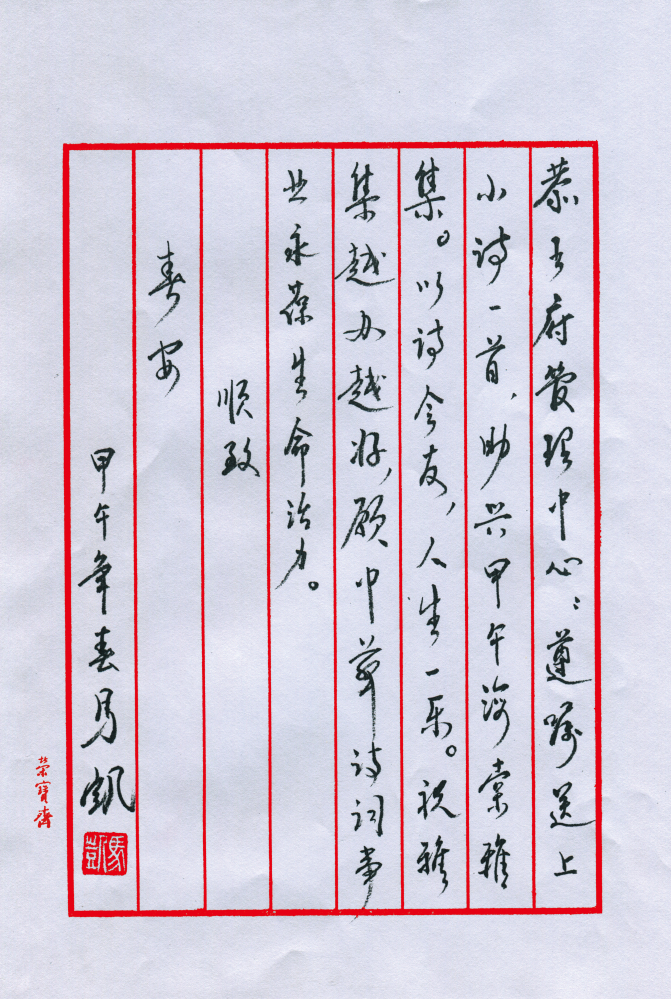 恭王府管理中心：遵嘱送上
小诗一首，助兴甲午海棠雅
集。以诗会友，人生一乐。祝雅
集越办越好，愿中华诗词事
业永葆生命活力。
顺致
春安
甲午年春马凯
馬凱
荣寳齋